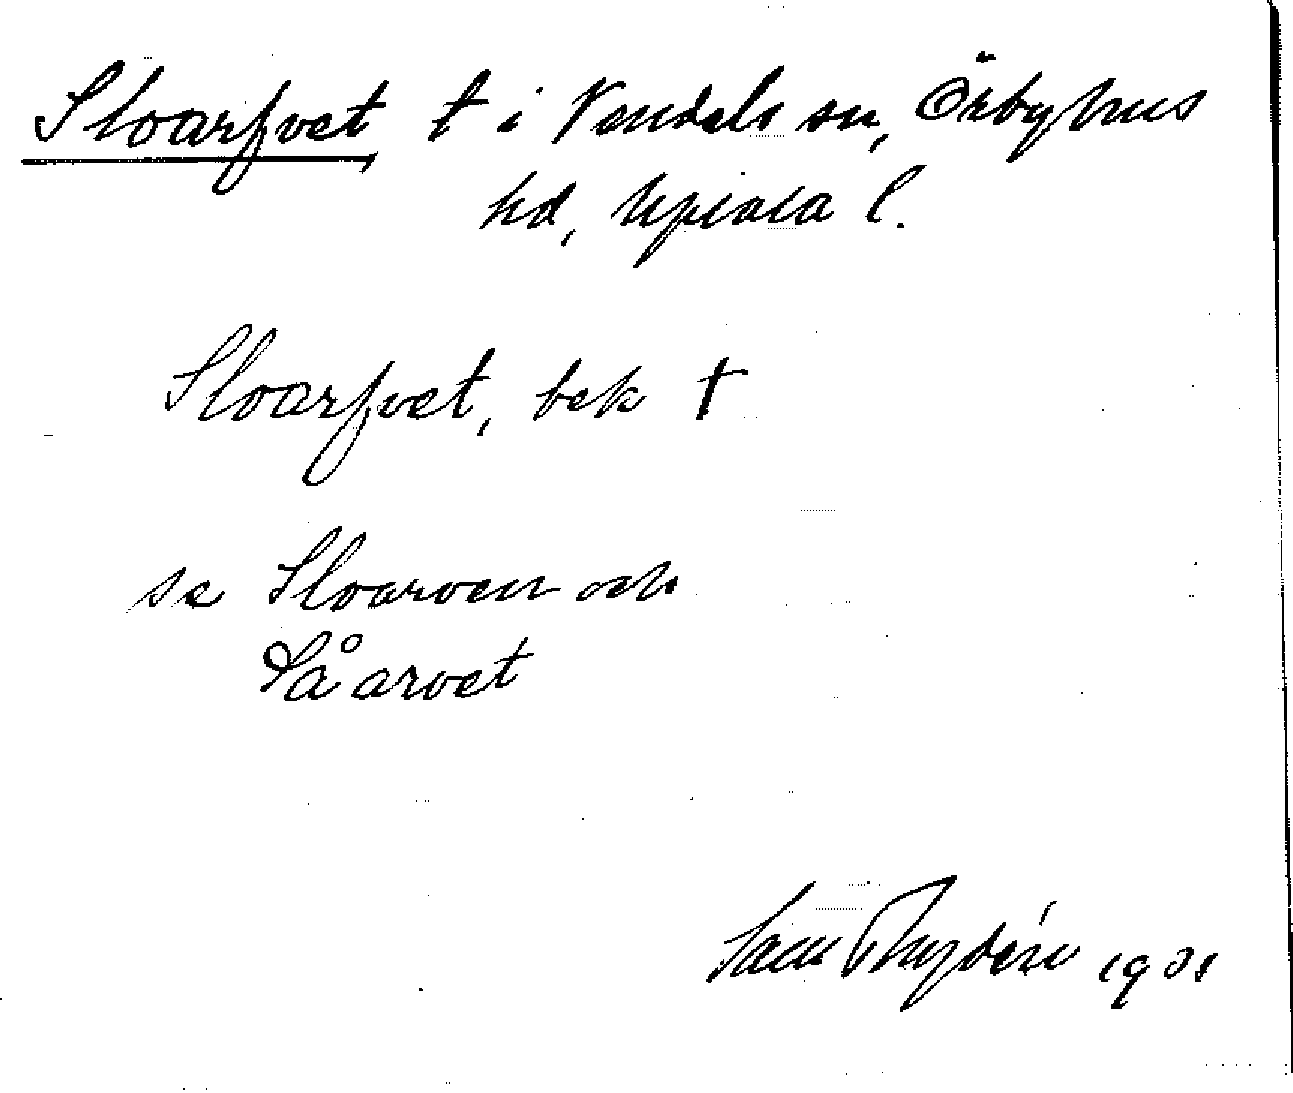 Sloarfvet t i Vendels sn, Örbyhus
hd, Upsala l.
Sloarfvet, bek †
se Sloarven och
Såarvet
Rydén 19